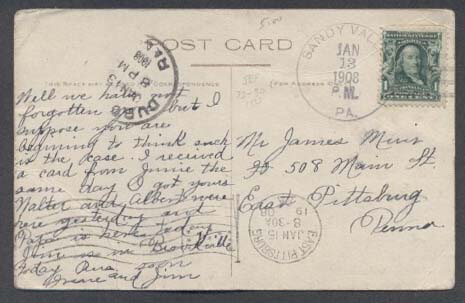 POST CARD
THIS SPACE MAY BE USED FOR CORRESPONDENCE
SANDY VAL
JAN
13
1908
P.M.
PA.
JAN 13
6 PM
1908
Well we have not
forgotten but I
suppose you are
beginning to think such
is the case. I received
a card from Junie the
same day I got yours
Walter and Albert were
here yesterday and
Papa is here today
June is in Brookville
today Ans. soon
Irene and Jim
Mr James Muir
508 Main St
East Pittsburg
Penna
EAST PITTSBURG
JAN 15
8-30A
1908